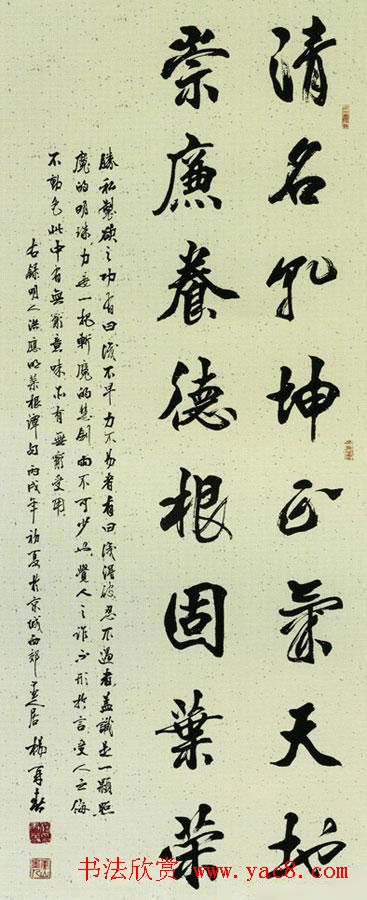 清名乾坤正氣天地
崇廉養德根固葉榮
勝私製欲之功有曰識不早力不易者有曰識得破忍不過者蓋識是一顆照
魔的明珠力是一把斬魔的慧劍而不可少也覺人之詐不形於言受人之侮
不動色此中有無窮意味亦有無窮受用
右錄明人洪應明菜根譚句丙戌年初夏於京城西郊居楊再春
书法欣赏 www.yac8.com